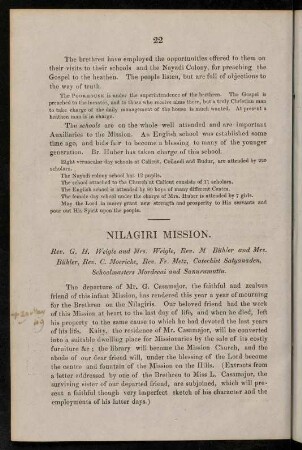 22
The brethren have employed the opportunities offered to them on
their visits to their schools and the Nayadi Colony, for preaching the
Gospel to the heathen. The people listen, but are full of objections to
the way of truth.
The Poorhouse is under the superintendence of the brethren. The Gospel is
preached to the inmates, and to those who receive alms there, but a truly Christian man
to take charge of the daily management of the house is much wanted. At present a
heathen man is in charge.
The schools are on the whole well attended and are important
Auxiliaries to the Mission. An English school was established some
time ago, and bids far to become a blessing to many of the younger
generation. Br. Huber has taken charge of this school.
Eight vernacular day schools at Calicut, Coilandi and Vadur, are attended by
scholars.
The Nayadi colony school has 19 pupils.
The school attached to the Church at Calicut consists of 17 scholars.
The English school is attended by 30 boys of many different Castes.
The female school under the charge of Mrs. Huber is attended by 7 girls.
May the Lord in mercy grant new strength and prosperity to His servants and
pour out His Spirit upon the people.
NILAGIRI MISSION.
Rev. G. H. Weigle and Mrs. Weigle, Rev. M Bühler and Mrs.
Bühler, Rev. C. Moericke, Rev. Fr. Metz, Catechist Satyanaden,
Schoolmasters Mordecai and
The departure of Mr. G. Casamajor, the faithful and zealous
friend of this infant Mission, has rendered this year a year of mourning
for the Brethren on the Nilagiris. Our beloved friend had the work
of this Mission at heart to the last day of his life, and when he died, left
his property to the same cause to which he had devoted the last years
of his life. Kaity, the residence of Mr. Casamajor, will be converted
into a suitable dwelling place for Missionaries by the sale of its costly
furniture &c; the library will become the Mission Church, and the
abode of our dear friend will, under the blessing of the Lord become
the centre and fountain of the Mission on the Hills. (Extracts from
a letter addressed by one of the Brethren to Miss L. Casamajor, the
surviving sister of our departed friend, are subjoined, which will pre-
sent a faithful though very imperfect sketch of his character and the
employments of his latter days.)